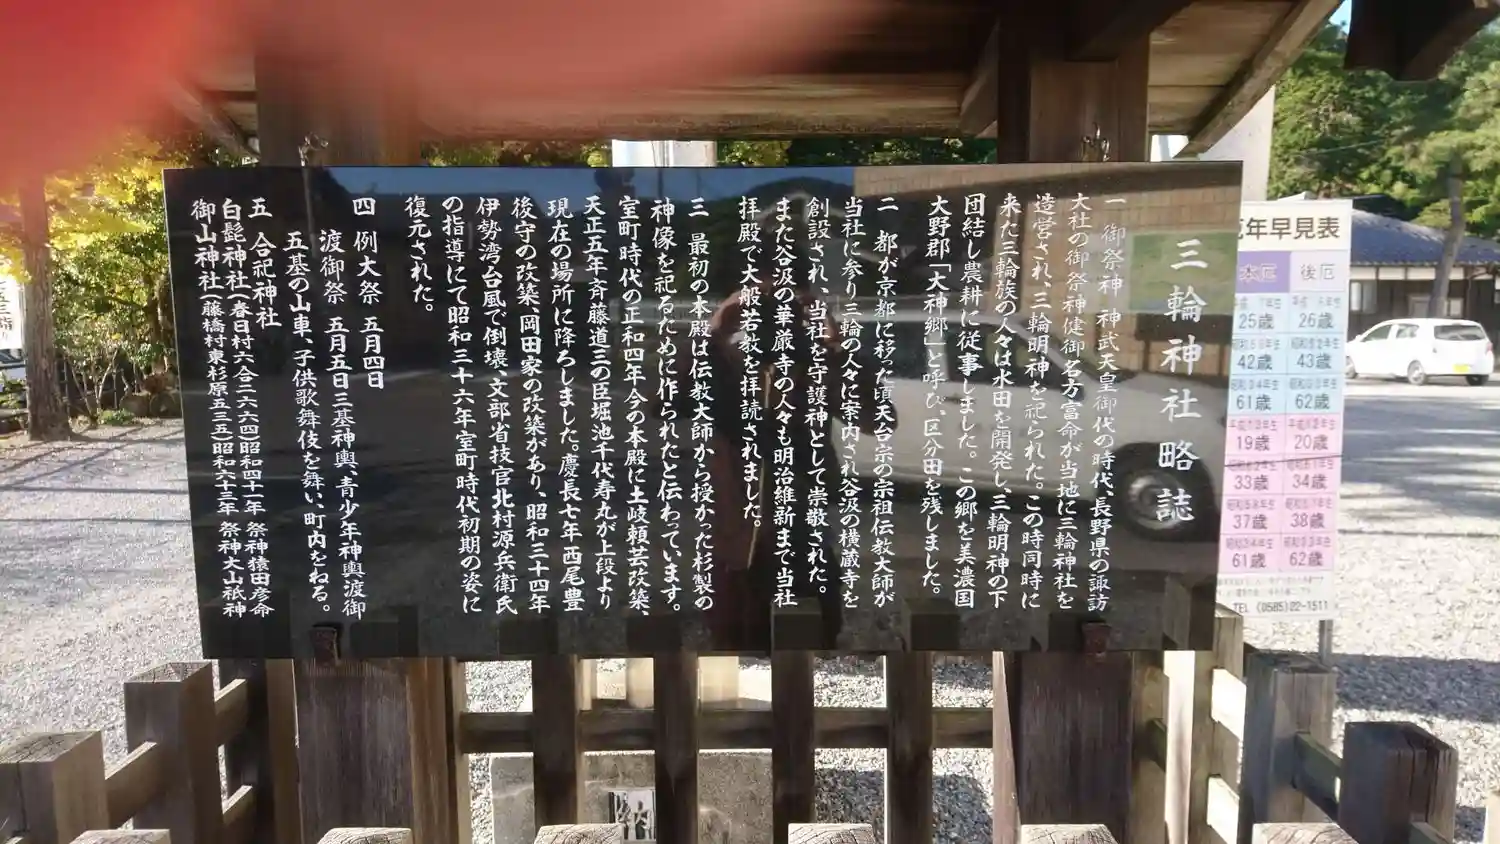 三輪神社略誌
一 御祭神 神武天皇御代の時代、長野県の諏訪
大社の御祭神健御名方富命が当地に三輪神社を
造営され、三輪明神を祀られた。この時同時に
来た三輪族の人々は水田を開発し、三輪明神の下
団結し農耕に従事しました。この郷を美濃国
大野郡「大神郷」と呼び、区分田を残しました。
二 都が京都に移った頃天台宗の宗祖伝教大師が
当社に参り三輪の人々に案内され谷汲の横蔵寺を
創設され、当社を守護神として崇敬された。
また谷汲の華厳寺の人々も明治維新まで当社
拝殿で大般若教を拝読されました。
三 最初の本殿は伝教大師から授かった杉製の
神像を祀るために作られたと伝わっています。
室町時代の正和四年今の本殿に土岐頼芸改築、
天正五年斉藤道三の臣堀池千代寿丸が上段より
現在の場所に降ろしました。慶長七年西尾豊
後守の改築、岡田家の改築があり、昭和三十四年
伊勢湾台風で倒壊、文部省技官北村源兵衛氏
の指導にて昭和三十六年室町時代初期の姿に
復元された。
四 例大祭 五月四日
渡御祭 五月五日三基神輿、青少年神輿渡御
五基の山車、子供歌舞伎を舞い、町内をねる。
五 合祀神社
白髭神社(春日村六合三六六四)昭和四十一年 祭神猿田彦命
御山神社(藤橋村東杉原五三五)昭和六十三年 祭神大山祇神
年早見表
本厄 後厄
25歳 26歳
42歳 43歳
61歳 62歳
19歳 20歳
33歳 34歳
37歳 38歳
61歳 62歳
TEL (0585)22-1511